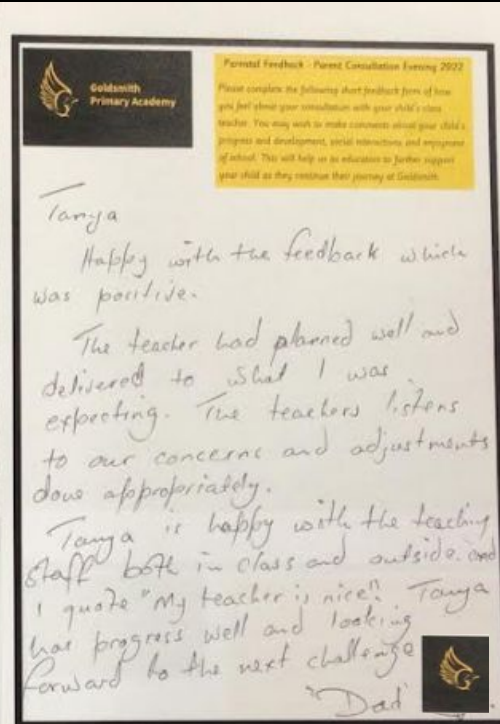 Goldsmith
Primary Academy
Parental Feedback - Parent Consultation Evening 2022
Please complete the following short feedback form of how
you feel about your consultation with your child's class
teacher. You may wish to make comments about your child's
progress and development, social interactions and enjoyment
of school. This will help us as educators to further support
your child as they continue their journey at Goldsmith
Tanya
Happy with the feedback which
was positive.
The teacher had planned well and
delivered to what I was
expecting. The teachers listens
to our concerns and adjustments
done appropriately.
Tanya is happy with the teaching
staff both in class and outside. and
I quote "My teacher is nice". Tanya
has progress well and looking
forward to the next challenge
"Dad"